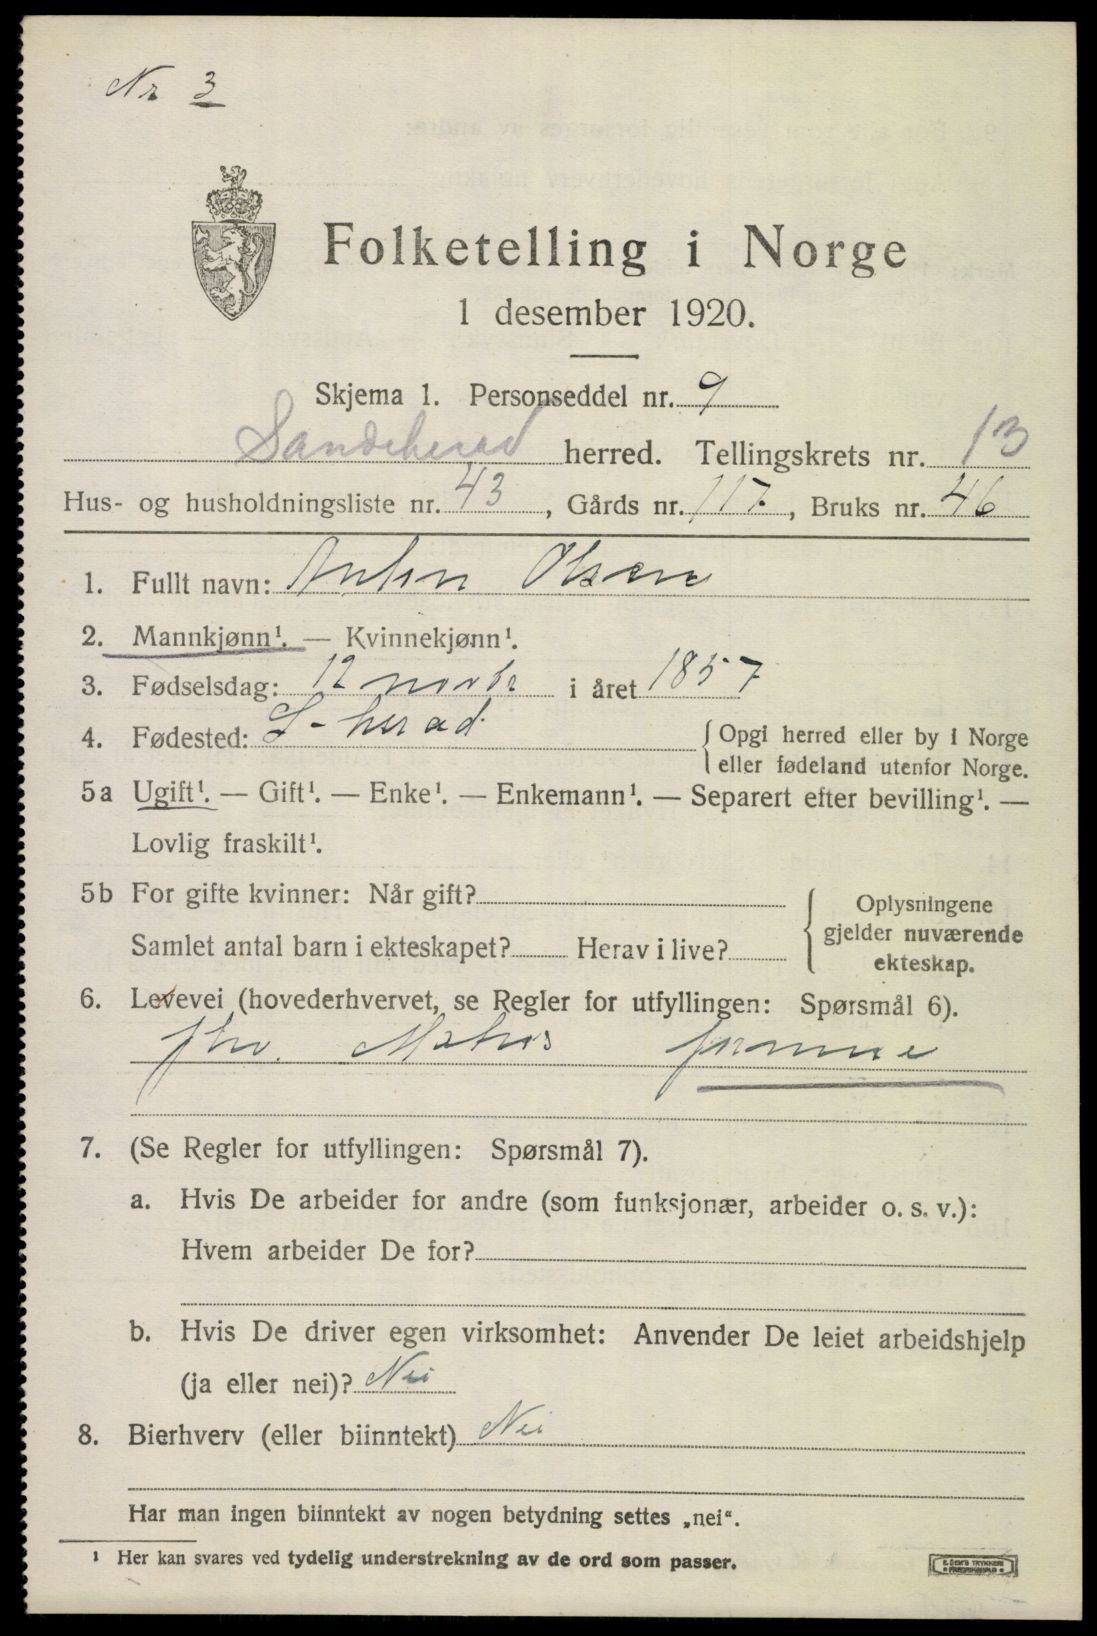 Nr 3
Folketelling i Norge
1 desember 1920.
Skjema 1. Personseddel nr. 9
Sandeherad herred. Tellingskrets nr. 13
Hus- og husholdningsliste nr. 43, Gårds nr. 117, Bruks nr. 46
1. Fullt navn: Anton Olsen
2. Mannkjønn¹. — Kvinnekjønn¹.
3. Fødselsdag: 12 novbr i året 1857
4. Fødested: S-herad {Opgi herred eller by i Norge
eller fødeland utenfor Norge.
5a Ugift¹. — Gift¹. — Enke¹. — Enkemann¹. — Separert efter bevilling¹. —
Lovlig fraskilt¹.
5b For gifte kvinner: Når gift?
Samlet antal barn i ekteskapet? Herav i live?
{Oplysningene
gjelder nuværende
ekteskap.
6. Levevei (hovederhvervet, se Regler for utfyllingen: Spørsmål 6).
fhv. Matros
7. (Se Regler for utfyllingen: Spørsmål 7).
a. Hvis De arbeider for andre (som funksjonær, arbeider o. s. v.):
Hvem arbeider De for?
b. Hvis De driver egen virksomhet: Anvender De leiet arbeidshjelp
(ja eller nei)? Nei
8. Bierhverv (eller biinntekt) Nei
Har man ingen biinntekt av nogen betydning settes „nei“.
¹ Her kan svares ved tydelig understrekning av de ord som passer.
E. SEM'S TRYKKERI
FREDRIKSHALD